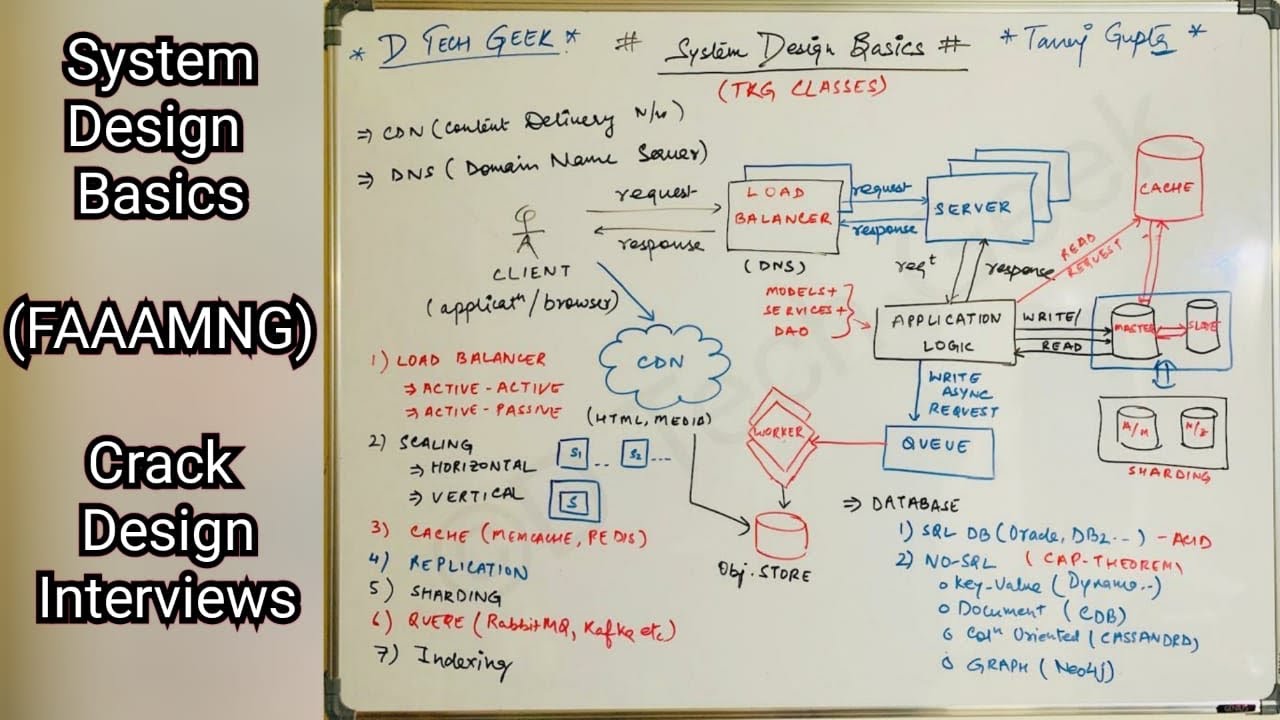 System
Design
Basics
(FAAAMNG)
Crack
Design
Interviews
* D TECH GEEK * # System Design Basics # * Tanuj Gupta *
(TKG CLASSES)
⇒ CDN (Content Delivery N/w)
⇒ DNS (Domain Name Server)
request
response
CLIENT
(applicatn/browser)
LOAD
BALANCER
(DNS)
request
response
SERVER
reqt
response
CACHE
READ
REQUEST
MODELS+
SERVICES+
DAO
APPLICATION
LOGIC
WRITE/
READ
MASTER
SLAVE
A/M
N/Z
SHARDING
WRITE
ASYNC
REQUEST
QUEUE
WORKER
CDN
(HTML, MEDIA)
Obj. STORE
1) LOAD BALANCER
⇒ ACTIVE - ACTIVE
⇒ ACTIVE - PASSIVE
2) SCALING
⇒ HORIZONTAL S1 .. S2 ...
⇒ VERTICAL S
3) CACHE (MEMCACHE, REDIS)
4) REPLICATION
5) SHARDING
6) QUEUE (RabbitMQ, Kafka etc)
7) Indexing
⇒ DATABASE
1) SQL DB (Oracle, DB2...) - ACID
2) NO-SQL (CAP-THEOREM)
o Key-Value (Dynamo..)
o Document (CDB)
o Coln Oriented (CASSANDRA)
o GRAPH (Neo4j)